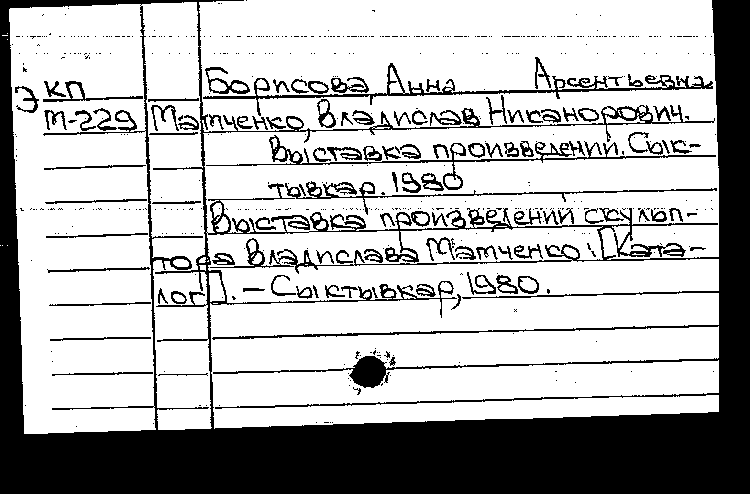 Э КП Борисова, Анна Арсентьевна
М-229 Матченко, Владислав Никанорович.
Выставка произведений. Сык-
тывкар. 1980
Выставка произведений скульп-
тора Владислава Матченко: [Ката-
лог]. - Сыктывкар, 1980.